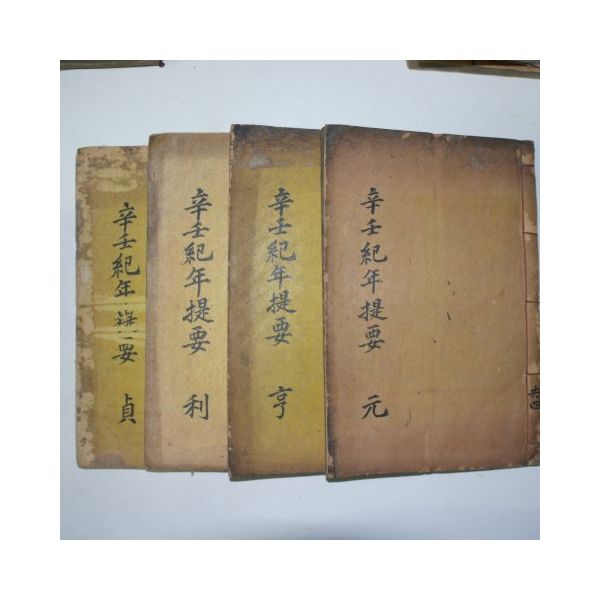 辛壬紀年提要 元
共四
辛壬紀年提要 亨
辛壬紀年提要 利
辛壬紀年提要 貞